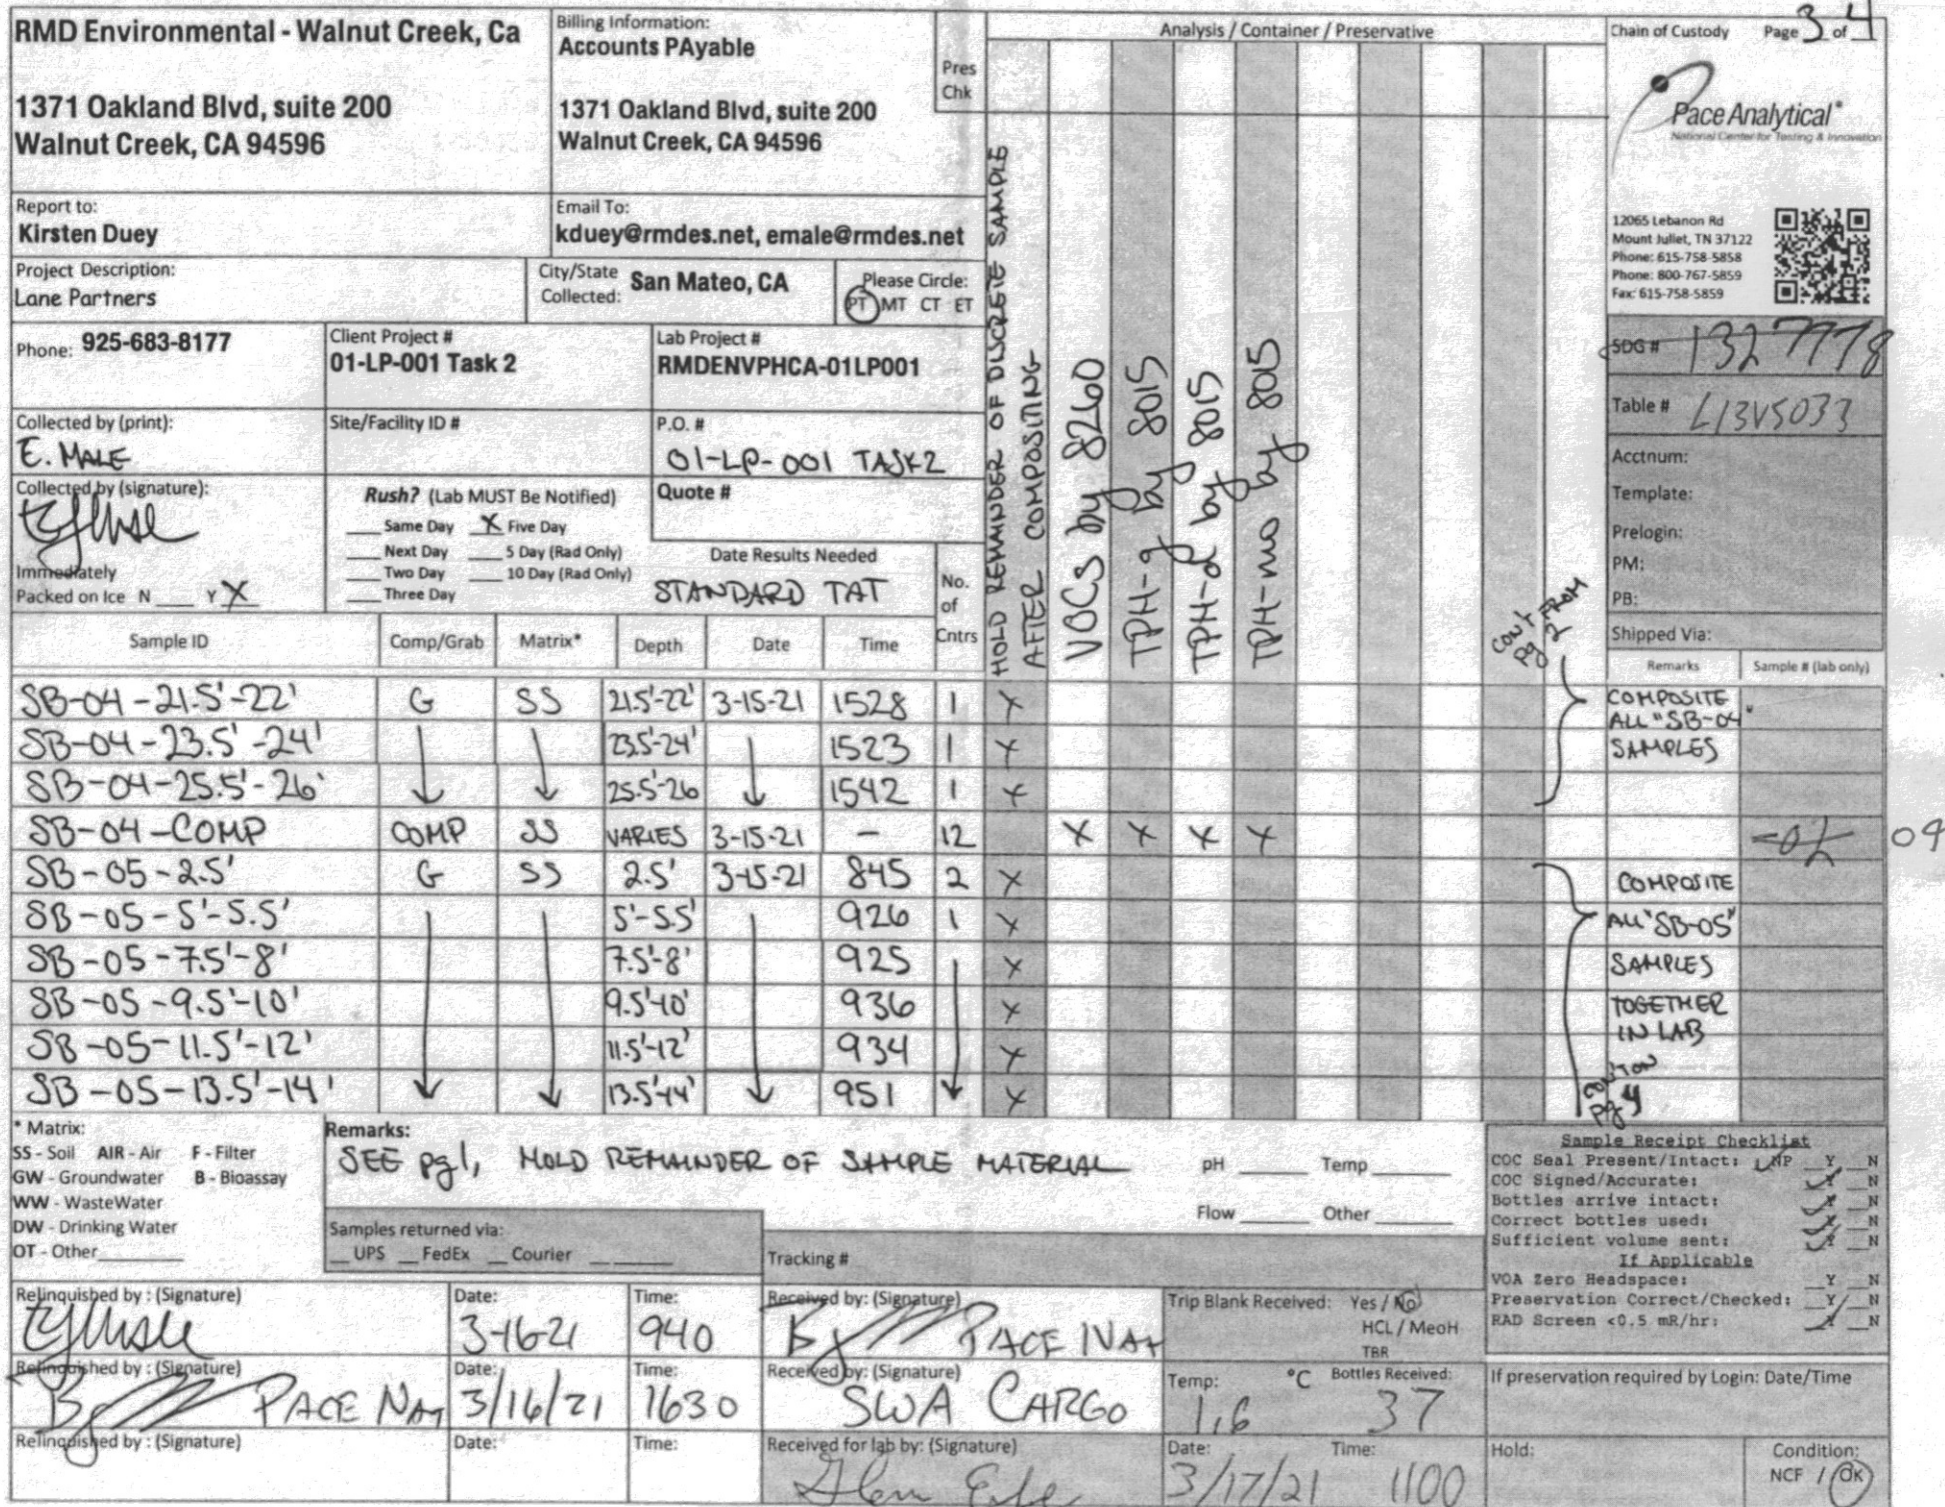 RMD Environmental - Walnut Creek, Ca
1371 Oakland Blvd, suite 200
Walnut Creek, CA 94596
Billing Information:
Accounts PAyable
1371 Oakland Blvd, suite 200
Walnut Creek, CA 94596
Pres
Chk
Analysis / Container / Preservative
Chain of Custody Page 3 of 4
Pace Analytical®
National Center for Testing & Innovation
12065 Lebanon Rd
Mount Juliet, TN 37122
Phone: 615-758-5858
Phone: 800-767-5859
Fax: 615-758-5859
Report to:
Kirsten Duey
Email To:
kduey@rmdes.net, emale@rmdes.net
Project Description:
Lane Partners
City/State
Collected: San Mateo, CA
Please Circle:
PT MT CT ET
Phone: 925-683-8177
Client Project #
01-LP-001 Task 2
Lab Project #
RMDENVPHCA-01LP001
Collected by (print):
E. MALE
Site/Facility ID #
P.O. #
01-LP-001 TASK2
Collected by (signature):
Immediately
Packed on Ice N ___ Y X
Rush? (Lab MUST Be Notified)
___ Same Day X Five Day
___ Next Day ___ 5 Day (Rad Only)
___ Two Day ___ 10 Day (Rad Only)
___ Three Day
Quote #
Date Results Needed
STANDARD TAT
No.
of
Cntrs
HOLD REMAINDER OF DISCRETE SAMPLE
AFTER COMPOSITING
VOCs by 8260
TPH-g by 8015
TPH-d by 8015
TPH-mo by 8015
CONT FROM
pg 2
SDG # 1327778
Table # L13V5033
Acctnum:
Template:
Prelogin:
PM:
PB:
Shipped Via:
Remarks Sample # (lab only)
Sample ID Comp/Grab Matrix* Depth Date Time
SB-04-21.5'-22' G SS 21.5'-22' 3-15-21 1528 1 X COMPOSITE ALL "SB-04"
SB-04-23.5'-24' 23.5'-24' 1523 1 X SAMPLES
SB-04-25.5'-26' 25.5'-26 1542 1 X
SB-04-COMP COMP SS VARIES 3-15-21 - 12 X X X X -02 09
SB-05-2.5' G SS 2.5' 3-15-21 845 2 X COMPOSITE
SB-05-5'-5.5' 5'-5.5' 926 1 X ALL "SB-05"
SB-05-7.5'-8' 7.5'-8' 925 X SAMPLES
SB-05-9.5'-10' 9.5'-10' 936 X TOGETHER
SB-05-11.5'-12' 11.5'-12' 934 X IN LAB
SB-05-13.5'-14' 13.5'-14' 951 X CON'T ON pg 4
* Matrix:
SS - Soil AIR - Air F - Filter
GW - Groundwater B - Bioassay
WW - WasteWater
DW - Drinking Water
OT - Other
Remarks:
SEE pg 1, HOLD REMAINDER OF SAMPLE MATERIAL
pH ___ Temp ___
Flow ___ Other ___
Samples returned via:
__ UPS __ FedEx __ Courier __
Tracking #
Sample Receipt Checklist
COC Seal Present/Intact: ✓NP _Y _N
COC Signed/Accurate: ✓Y _N
Bottles arrive intact: ✓Y _N
Correct bottles used: ✓Y _N
Sufficient volume sent: ✓Y _N
If Applicable
VOA Zero Headspace: _Y _N
Preservation Correct/Checked: _Y _N
RAD Screen <0.5 mR/hr: ✓Y _N
Relinquished by : (Signature)
Date:
3-16-21
Time:
940
Received by: (Signature)
PACE NAT
Trip Blank Received: Yes / No
HCL / MeoH
TBR
Relinquished by : (Signature)
PACE NAT
Date:
3/16/21
Time:
1630
Received by: (Signature)
SWA CARGO
Temp: °C
1.6
Bottles Received:
37
If preservation required by Login: Date/Time
Relinquished by : (Signature)
Date:
Time:
Received for lab by: (Signature)
Date:
3/17/21
Time:
1100
Hold:
Condition:
NCF / OK